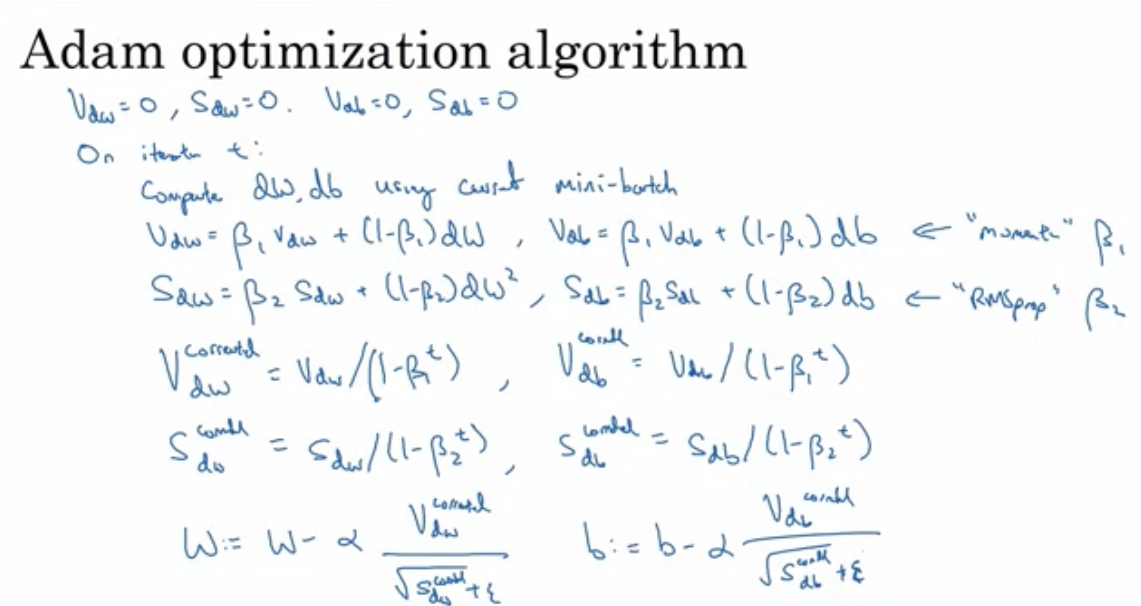 Adam optimization algorithm
V_dw = 0, S_dw = 0. V_db = 0, S_db = 0
On iteration t:
Compute dW, db using current mini-batch
V_dw = β₁ V_dw + (1-β₁) dW , V_db = β₁ V_db + (1-β₁) db ← "momentum" β₁
S_dw = β₂ S_dw + (1-β₂) dW² , S_db = β₂ S_db + (1-β₂) db ← "RMSprop" β₂
V_dw^corrected = V_dw / (1-β₁^t) , V_db^corrected = V_db / (1-β₁^t)
S_dw^corrected = S_dw / (1-β₂^t) , S_db^corrected = S_db / (1-β₂^t)
W := W - α V_dw^corrected / (√S_dw^corrected + ε) b := b - α V_db^corrected / (√S_db^corrected + ε)